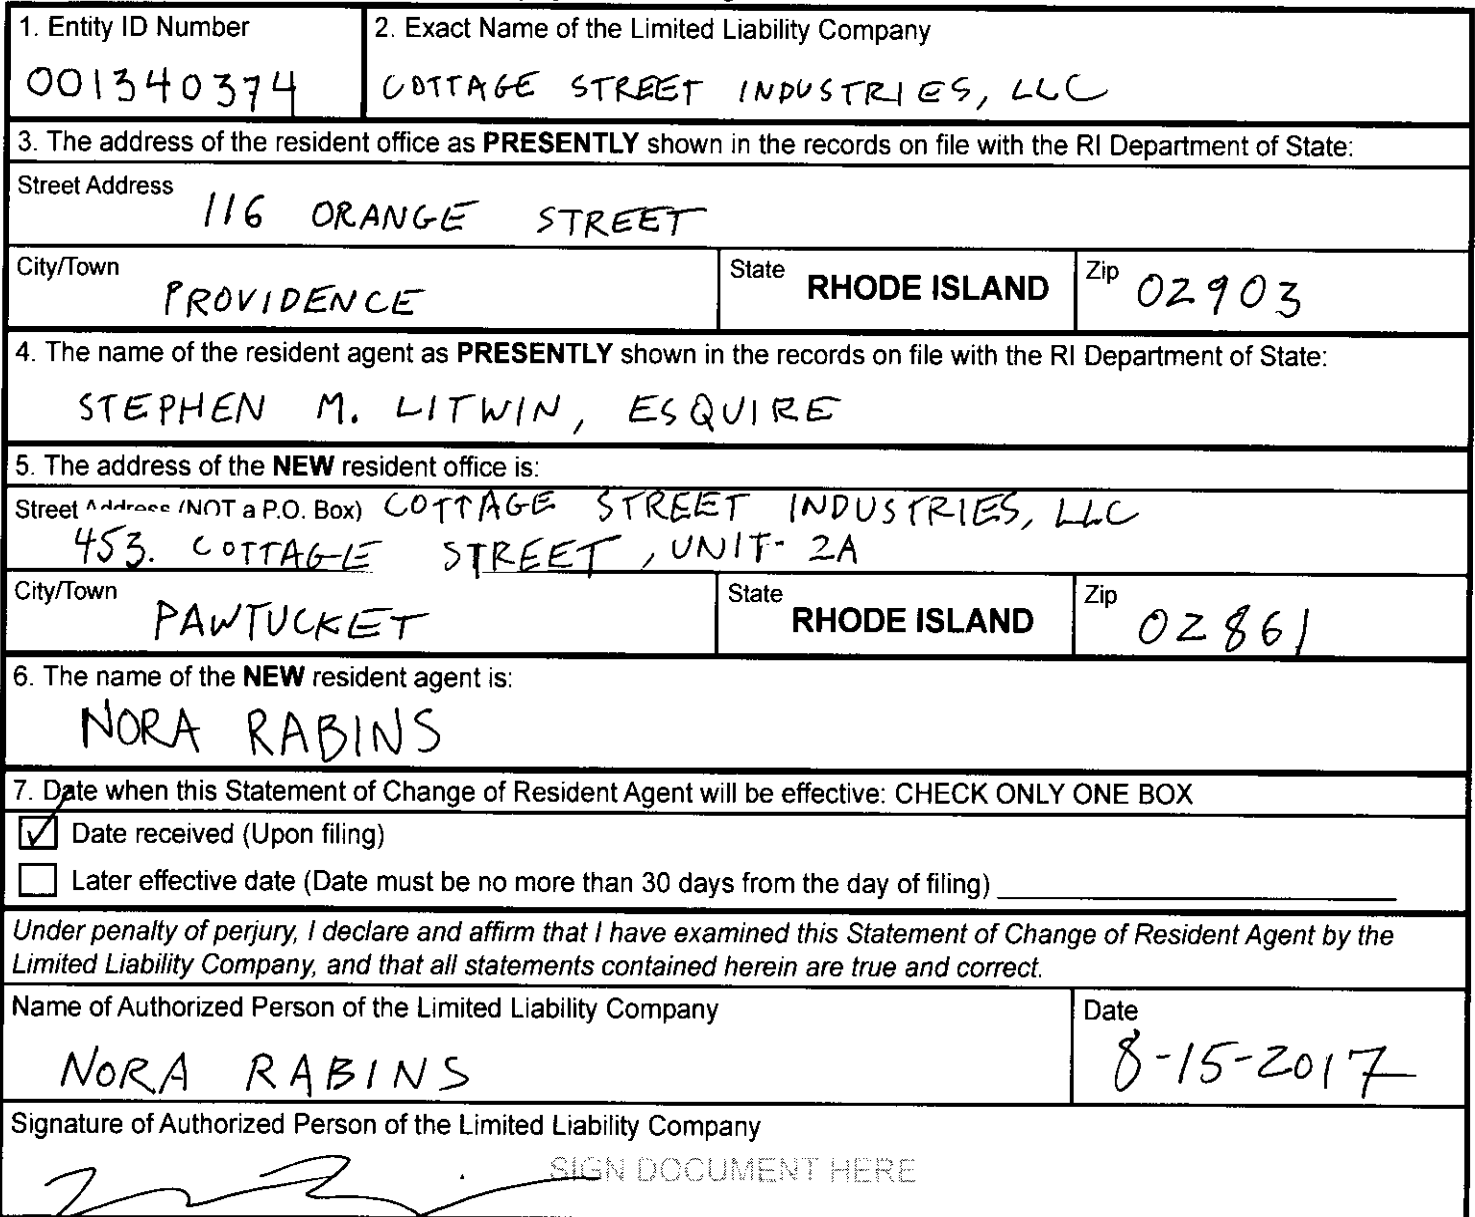 1. Entity ID Number
001340374
2. Exact Name of the Limited Liability Company
COTTAGE STREET INDUSTRIES, LLC
3. The address of the resident office as PRESENTLY shown in the records on file with the RI Department of State:
Street Address
116 ORANGE STREET
City/Town
PROVIDENCE
State
RHODE ISLAND
Zip
02903
4. The name of the resident agent as PRESENTLY shown in the records on file with the RI Department of State:
STEPHEN M. LITWIN, ESQUIRE
5. The address of the NEW resident office is:
Street Address (NOT a P.O. Box) COTTAGE STREET INDUSTRIES, LLC
453. COTTAGE STREET, UNIT- 2A
City/Town
PAWTUCKET
State
RHODE ISLAND
Zip
02861
6. The name of the NEW resident agent is:
NORA RABINS
7. Date when this Statement of Change of Resident Agent will be effective: CHECK ONLY ONE BOX
Date received (Upon filing)
Later effective date (Date must be no more than 30 days from the day of filing)
Under penalty of perjury, I declare and affirm that I have examined this Statement of Change of Resident Agent by the
Limited Liability Company, and that all statements contained herein are true and correct.
Name of Authorized Person of the Limited Liability Company
NORA RABINS
Date
8-15-2017
Signature of Authorized Person of the Limited Liability Company
SIGN DOCUMENT HERE